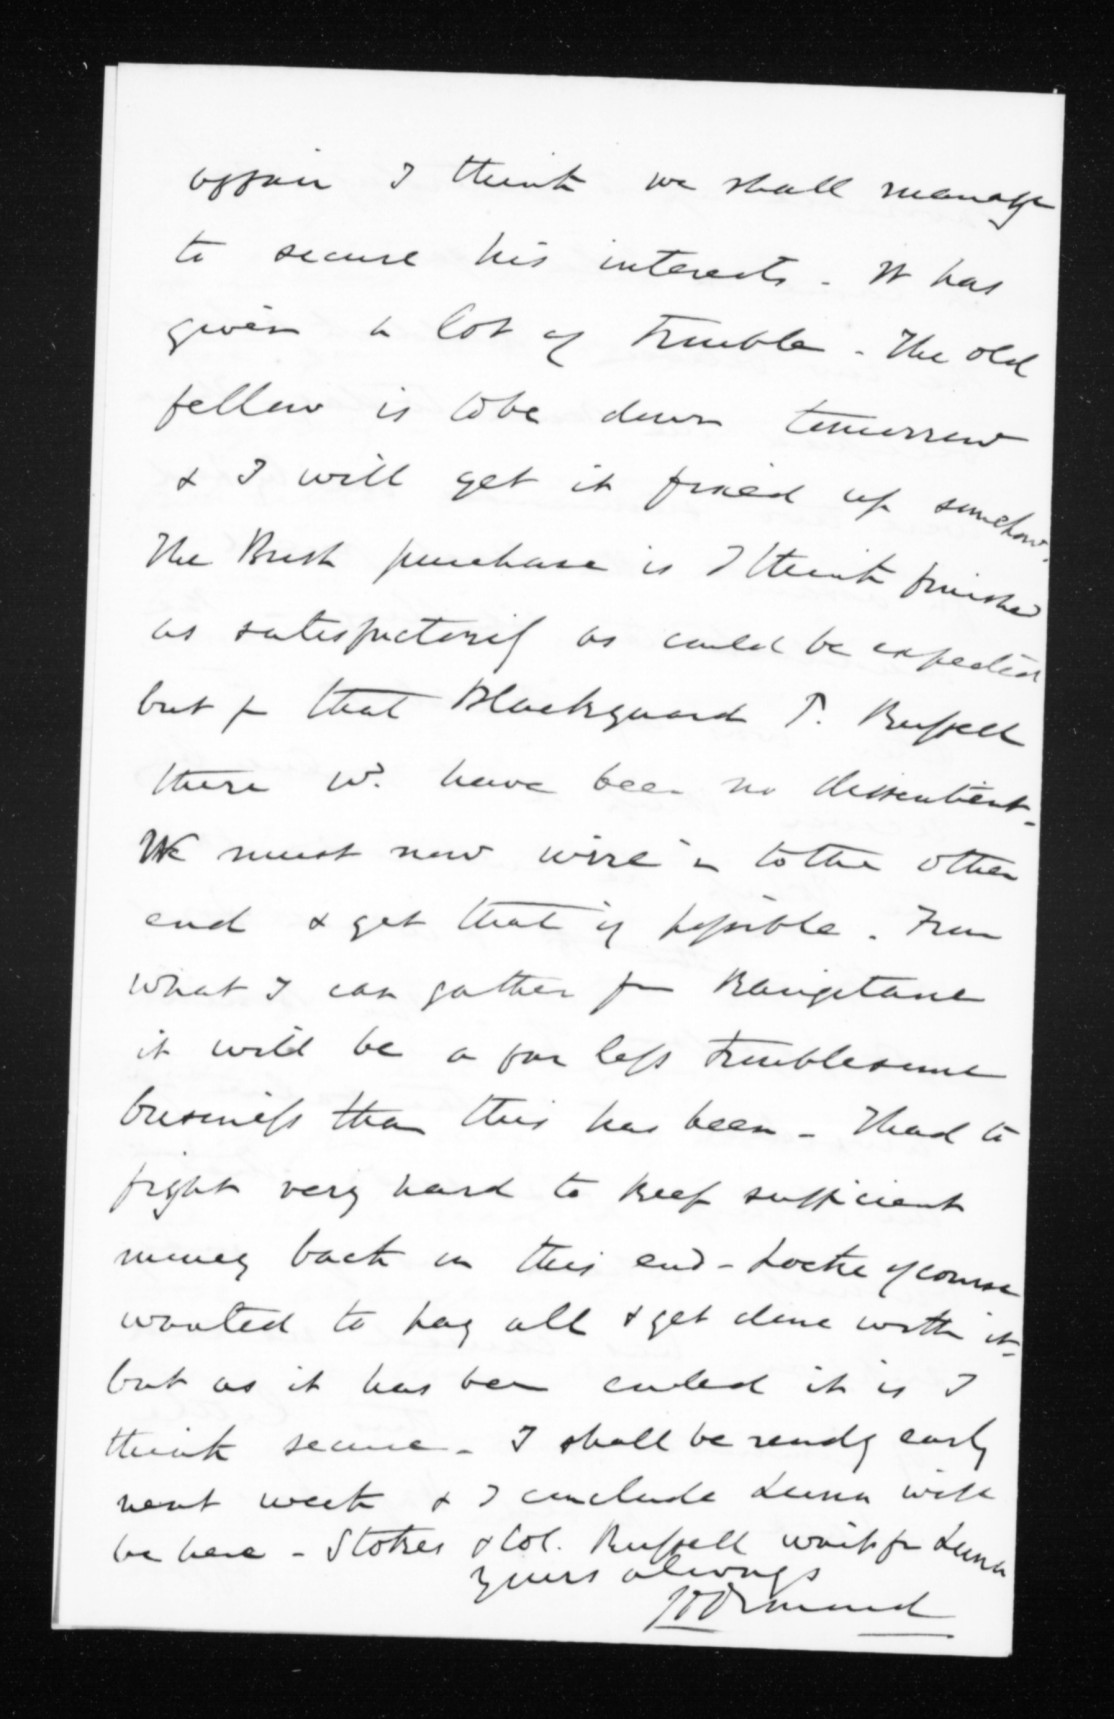 affair I think we shall manage
to secure his interests - It has
given a lot of trouble - The old
fellow is to be down tomorrow
& I will get it fixed up somehow.
The Bush purchase is I think finished
as satisfactorily as could be expected
but for that Blackguard T. Russell
there wd. have been no dissentient -
We must now wire in to the other
end & get that if possible. From
what I can gather fm Rangitane
it will be a far less troublesome
business than this has been - I had to
fight very hard to keep sufficient
money back on this end - Locke of course
wanted to pay all & get done with it -
but as it has been ended it is I
think secure - I shall be ready early
next week & I conclude Luna will
be here - Stokes & Col. Russell wait for Luna
yours always
JD Ormond